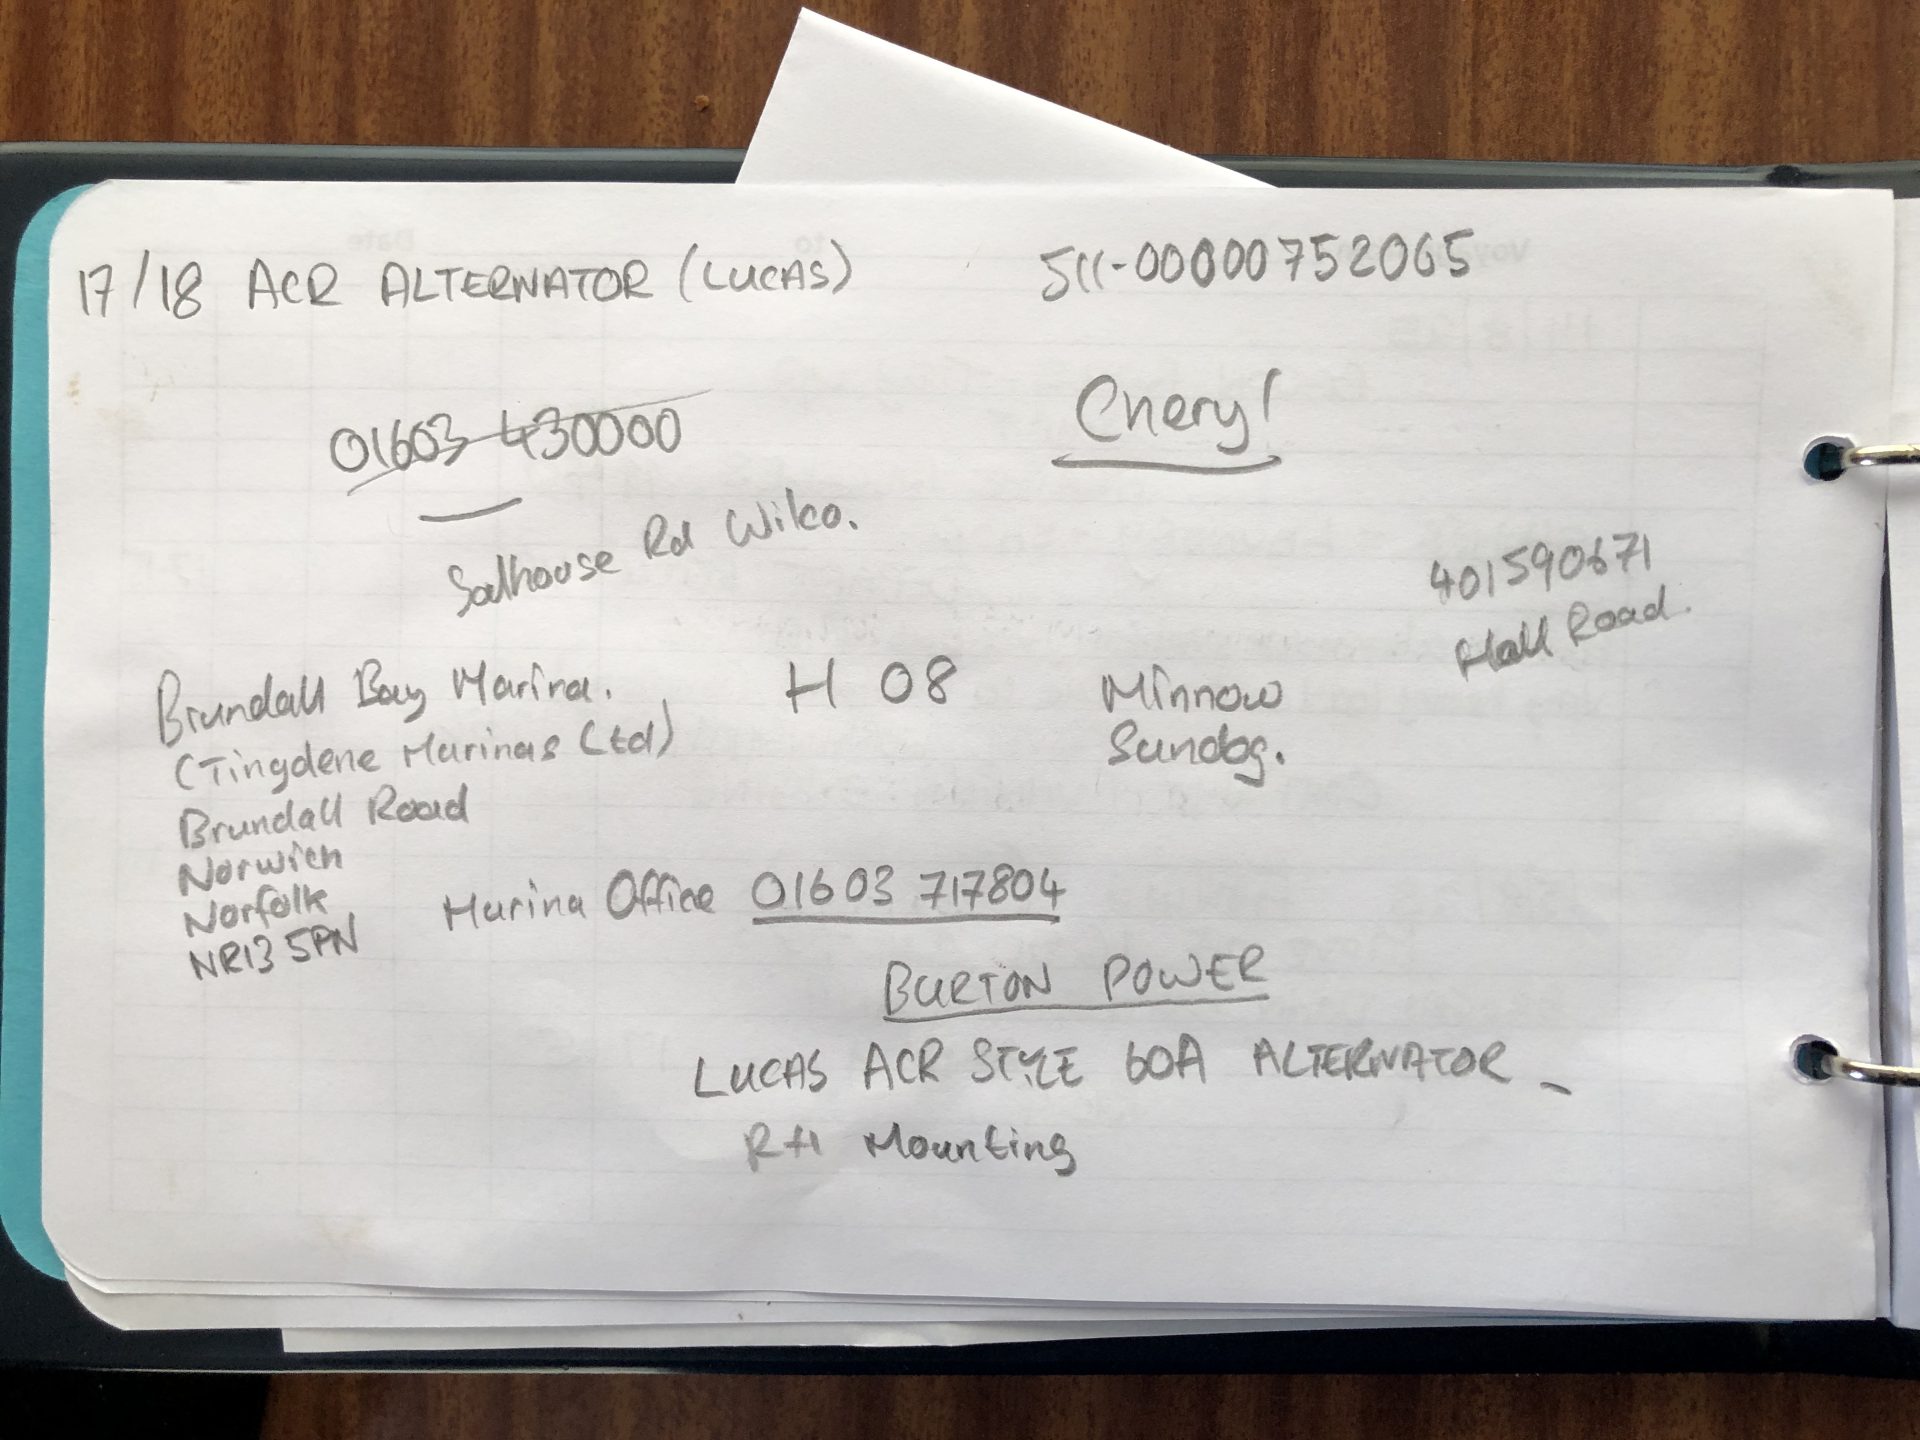 17/18 ACR ALTERNATOR (LUCAS)
511-00000752065
01603 430000
Cheryl
Salhouse Rd Wilco.
401590671
Hall Road.
Brundall Bay Marina.
(Tingdene Marinas Ltd)
Brundall Road
Norwich
Norfolk
NR13 5PN
H 08
Minnow
Sundog.
Marina Office 01603 717804
BURTON POWER
LUCAS ACR STYLE 60A ALTERNATOR -
RH Mounting